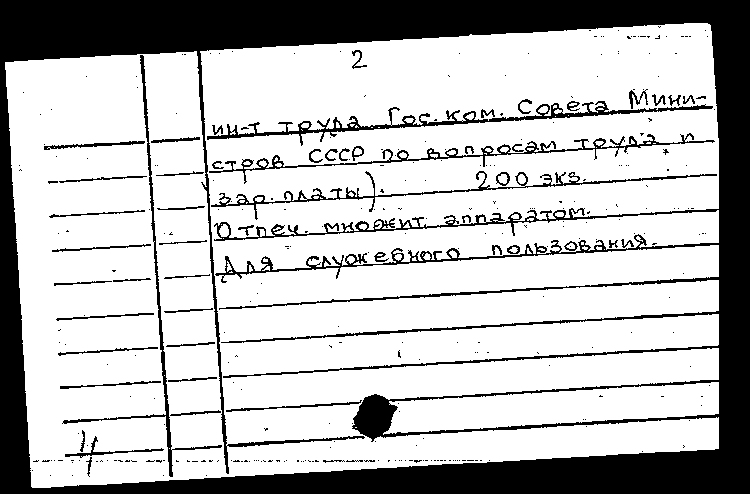 2
ин-т труда Гос. ком. Совета Мини-
стров СССР по вопросам труда и
зар. платы). 200 экз.
Отпеч. множит. аппаратом.
Для служебного пользования.